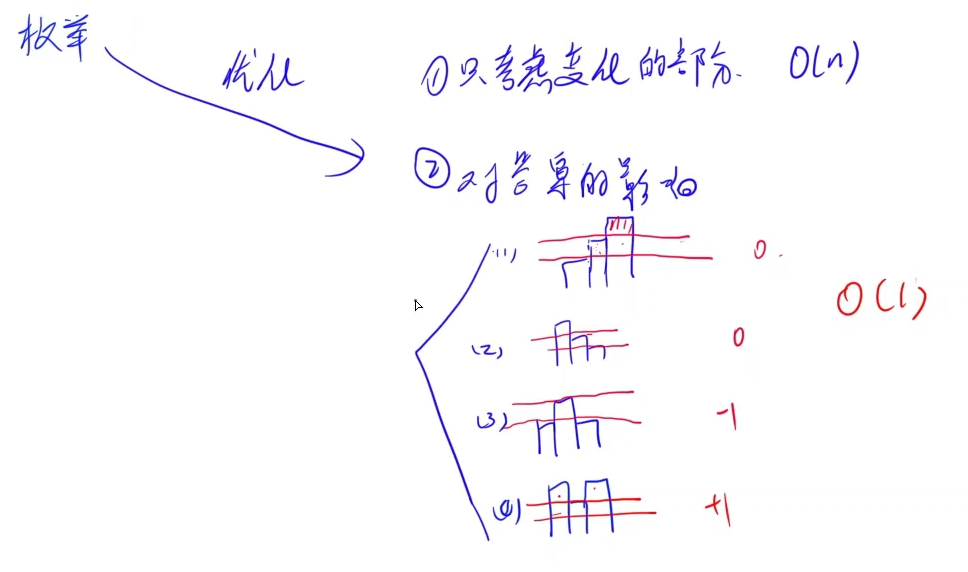 枚举
优化
①只考虑变化的部分. O(n)
②对答案的影响
(1) 0.
O(1)
(2) 0
(3) -1
(4) +1